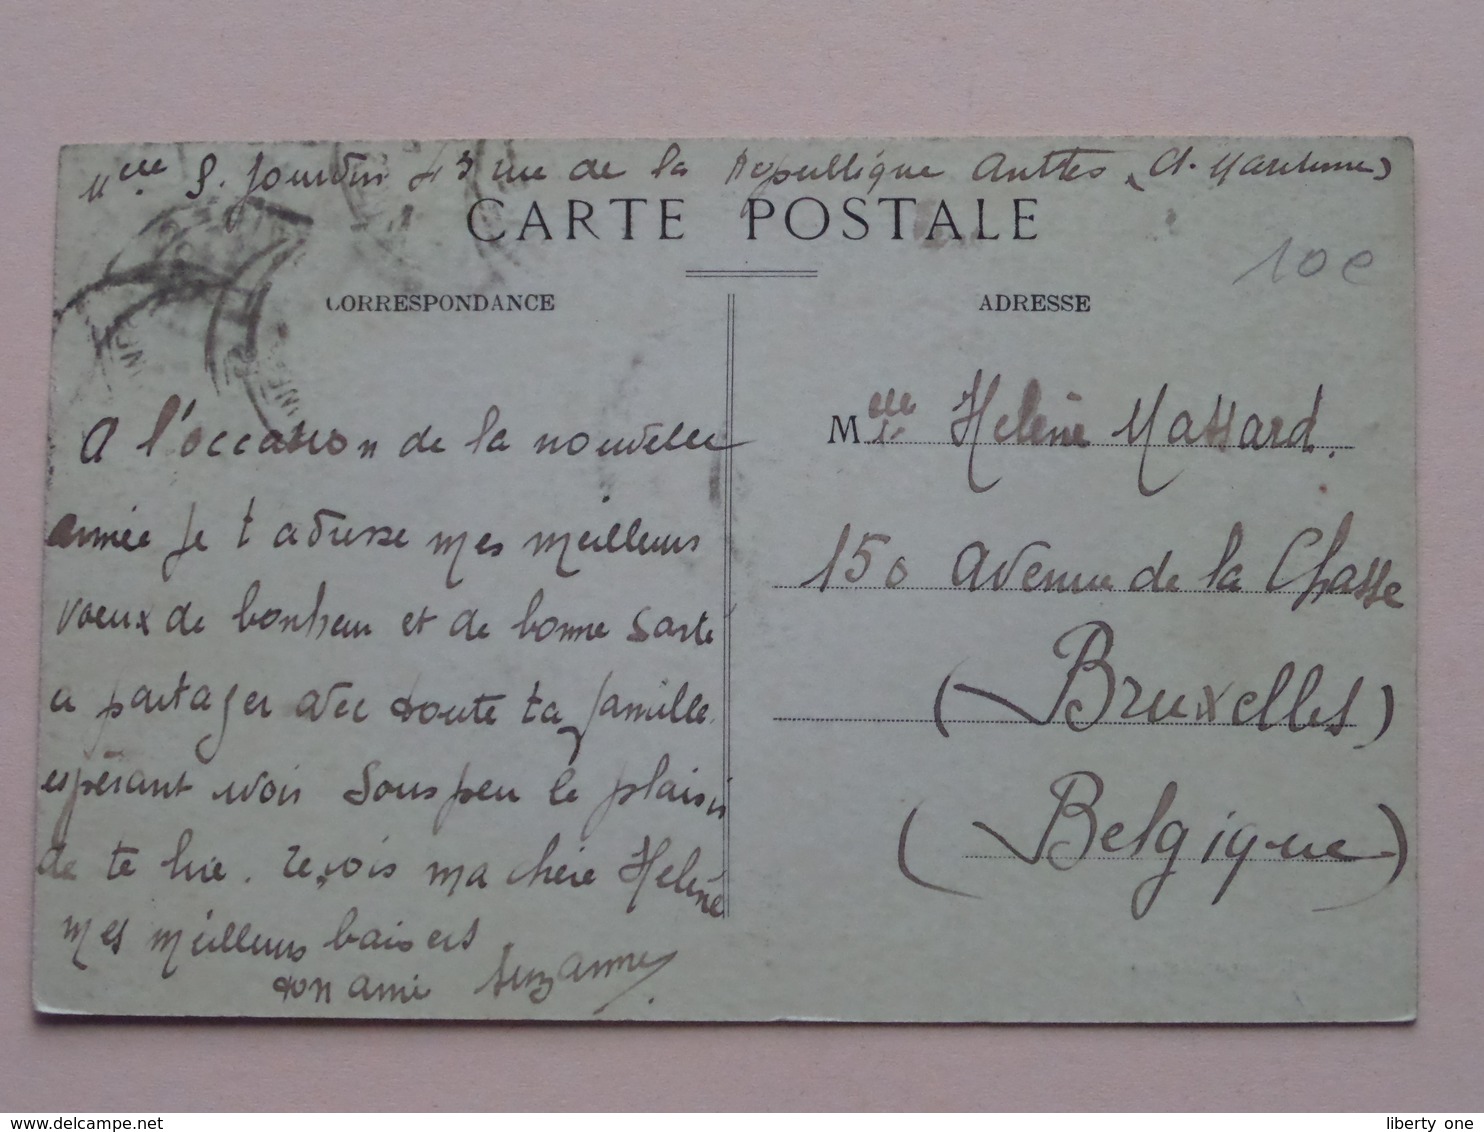 Melle S. Jourdin 43 rue de la République Antibes (A. Maritimes)
CARTE POSTALE
CORRESPONDANCE
ADRESSE
10e
A l'occasion de la nouvelle
année je t adresse mes meilleurs
voeux de bonheur et de bonne santé
a partager avec toute ta famille.
espérant avoir sous peu le plaisir
de te lire. reçois ma chère Helène
mes meilleurs baisers
ton amie Suzanne
Melle Helène Massard.
150 Avenue de la Chasse
(Bruxelles)
(Belgique)
www.delcampe.net
liberty_one